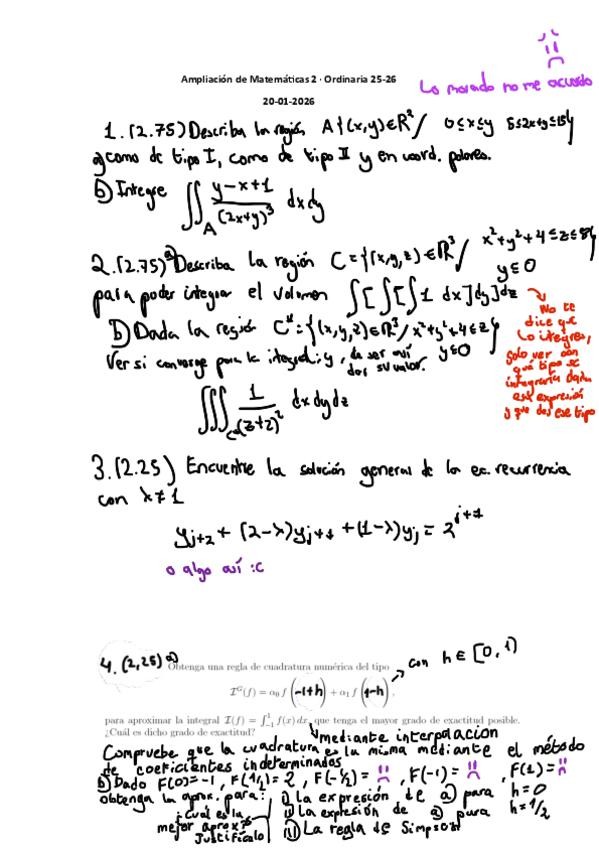 Ampliación de Matemáticas 2 · Ordinaria 25-26
Lo morado no me acuerdo
20-01-2026
1. (2.75) Describa la región A{(x,y)∈ℝ²/ 0≤x≤y 5≤2x+y≤15}
a) como de tipo I, como de tipo II y en coord. polares.
b) Integre ∬_A (y-x+1)/(2x+y)³ dxdy
2. (2.75) a) Describa la región C={(x,y,z)∈ℝ³/ x²+y²+4≤z≤8}
y≤0
para poder integrar el volumen ∫[∫[∫1 dx]dy]dz
No te
dice que
lo integres,
solo ver con
qué tipo se
integraría dada
esta expresión
y que des ese tipo
b) Dada la región C*={(x,y,z)∈ℝ³/x²+y²+4≤z}
y≤0
Ver si converge para la integral: y, de ser así
dar su valor.
∭_C* 1/(z+2)² dxdydz
3. (2.25) Encuentre la solución general de la ec. recurrencia
con λ≠1
y_{j+2} + (2-λ)y_{j+1} + (1-λ)y_j = 2^{j+1}
o algo así :c
4. (2,25) a) Obtenga una regla de cuadratura numérica del tipo
con h∈[0,1)
I^G(f) = α₀f(-1+h) + α₁f(1-h),
para aproximar la integral I(f) = ∫_{-1}^{1} f(x) dx, que tenga el mayor grado de exactitud posible.
¿Cuál es dicho grado de exactitud?
mediante interpolación
Compruebe que la cuadratura es la misma mediante el método
de coeficientes indeterminados
b) Dado F(0)=-1, F(1/2)=2, F(-1/2)= , F(-1)= , F(1)=
obtenga la aprox. para: i) La expresión de a) para h=0
ii) La expresión de a) para h=1/2
iii) La regla de Simpson
¿cuál es la
mejor aprox?
Justifícalo